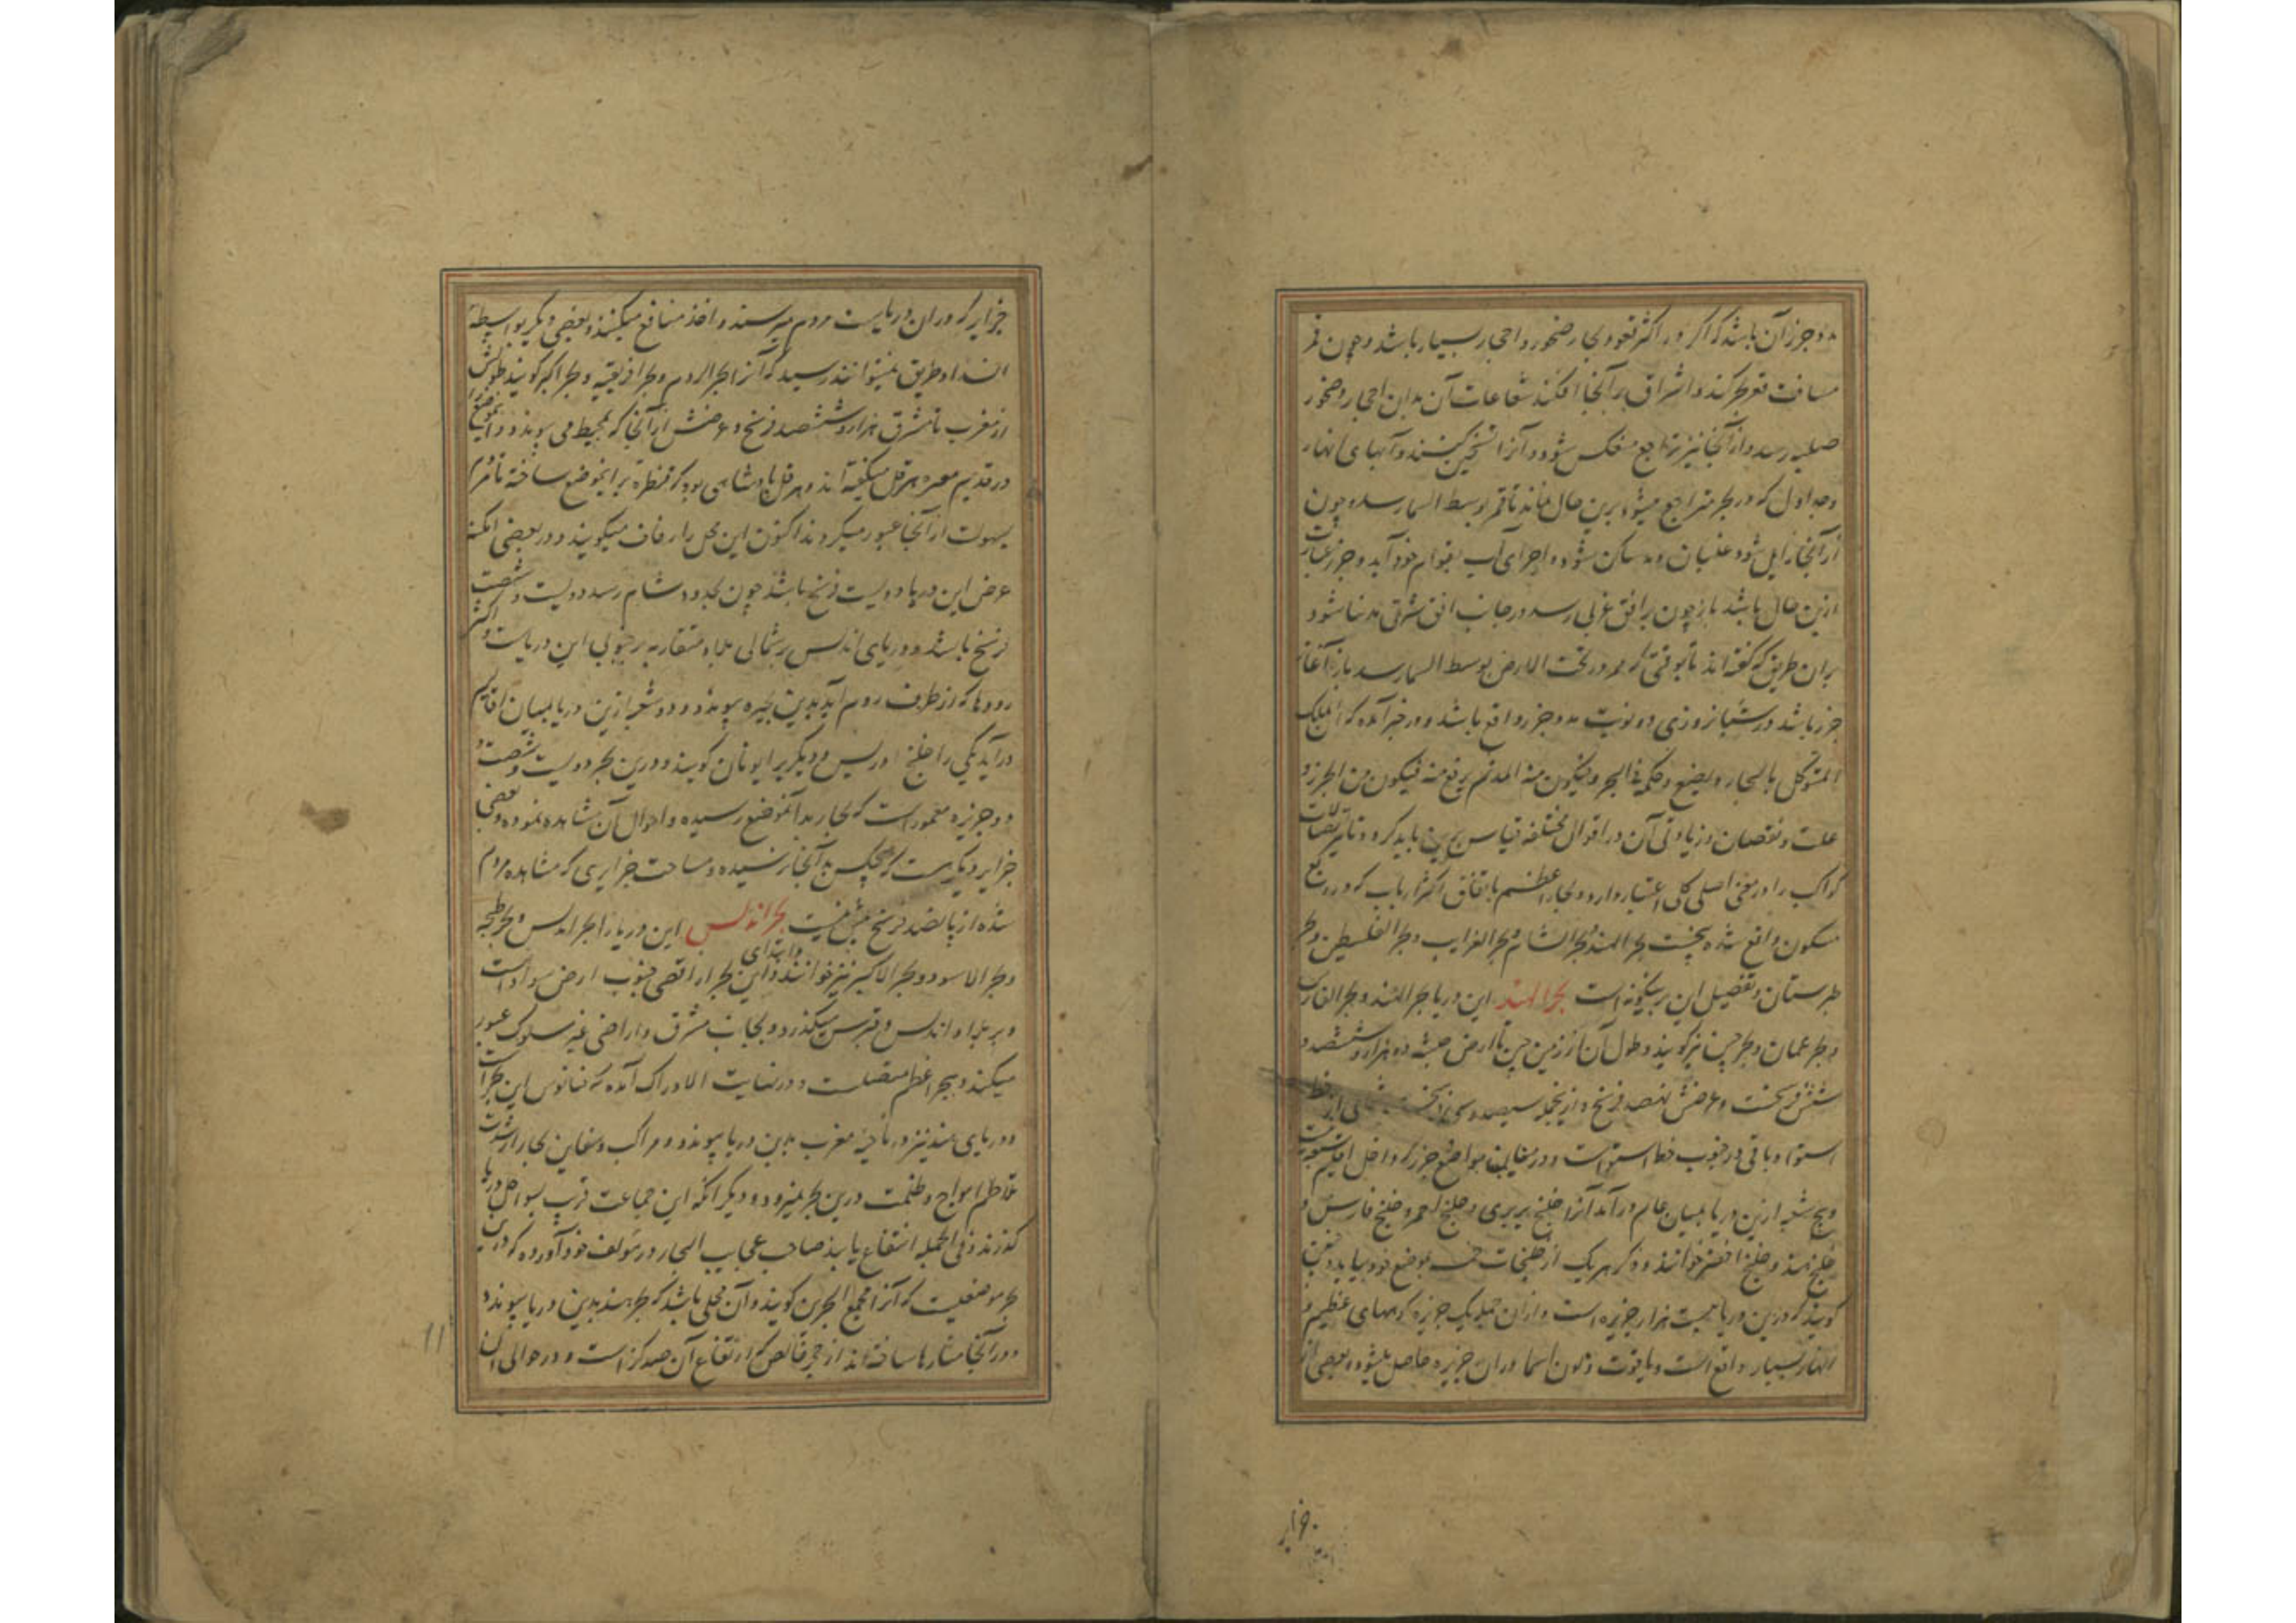 مد و جزر آن باشد که اکر در اکثر قعور بحار صخور و احجار بسیار باشد و چون قمر
مسافت قعر بحر کند و اشراق بر آنجا افکند شعاعات آن بدان احجار و صخور
صلبه رسد و از آنجا نیز تراجع منعکس شود و آنرا تسخین کنند و آبهای انهار
و جداول که در بحر متراجع میشود برین حال ماند تا قمر بوسط السما رسد و چون
از آنجا زایل شود غلیان مد ساکن شود و اجزای آب بقوام خود آید و جزر عبارت
ازین حال باشد باز چون برافق غربی رسد در جانب افق شرقی مد پیدا شود
بران طریق که گفته اند تا بوقتی که در تحت الارض بوسط السما رسد باز آغاز
جزر باشد در شبانروزی دو نوبت مد و جزر واقع باشد و در خبر آمده که ان الملک
المتوکل بالبحار یضع قدمیه فی البحر فیکون منه المد ثم یرفع منه فیکون من الجزر و
علت و نقصان و زیادتی آن در اقوال مختلفه قیاس برین باید کرد و تاثیر
کواکب را در معنی اصلی کلی اعتبار دارد و بحار اعظم باتفاق اکثر ارباب که در ربع
مسکون واقع شده پنجست بحر الهند و بحر الشام و بحر الغرایب و بحر الفلسطین و بحر
طبرستان و تفصیل این برینگونه است بحر الهند این دریا بحر الهند و بحر الفارس
و بحر عمان و بحر چین نیز کویند و طول آن از زمین چین تا ارض حبشه دو هزار و ششصد و
شش فرسخست و عرضش نهصد فرسخ و از نجمله سیصد و
استوا و باقی در جنوب خط استواست و در مقابل مواضع جزر که داخل اقلیم
و پنج شعبه ازین دریا بمیان عالم در آمد آنرا خلیج بربری و خلیج احمر و خلیج فارس و
خلیج هند و خلیج اخضر خوانند و ذکر هر یک از خلیجات بموضع خود بیاید
کویند که درین دریا بیست هزار جزیره است و از ان جمله یک جزیره کوههای عظیم و
انهار بسیار واقع است و یاقوت دران جزیره حاصل میشود و بعضی از
جزایر
جزایر که در ان دریاست مردم میرسند و اخذ منافع میکنند و بعضی دیگر بواسطه
انسداد طریق نمیتوانند رسید که آنرا بحر الروم و بحر افریقیه و بحر اکبر کویند طولش
از مغرب تا مشرق هزار و ششصد فرسخ و عرضش از آنجا که بمحیط می پیوندد و این موضع را
در قدیم معبره هرقل میکفته اند و هرقل پادشاهی بود که قنطره برین موضع ساخته تا مردم
بسهولت از آنجا عبور میکردند اکنون این محل را زقاق میکویند و در بعضی امکنه
عرض این دریا دویست فرسخ باشد چون بحدود شام رسد دویست و شصت
فرسخ باشد و دریای اندلس بر شمالی بلاد متقاربه بر جنوبی این دریاست و اکثر
رودها که از طرف روم آید بدین بحیره پیوندد و دو شعبه ازین دریا بمیان اقالیم
در آید یکی را خلیج اوریس و دیکریرا یونان کویند و درین بحر دویست و شصت و
دو جزیره معمور است که تجار بدانموضع رسیده و احوال آن مشاهده نموده و بعضی
جزایر دیکر هست که هیچکس بدآنجا نرسیده و مساحت جزایری که مشاهده مردم
شده از پانصد فرسخ بیش نیست بحر اندلس این دریا را بحر اندلس و بحر طنجه
و بحر الاسود و بحر الاکبر نیز خوانند و ابتدای این بحر از اقصی جنوب ارض سودانست
و بر بلاد اندلس و قبرس میکذرد و بجانب مشرق و اراضی غیر مسلوک عبور
میکند و ببحر اعظم متصلست و در نهایت الادراک آمده که اقیانوس این بحر است
و دریای هند نیز در ناحیه مغرب بدین دریا پیوندد و مراکب و سفاین تجار از شدت
تلاطم امواج و ظلمت درین بحر نمیرود و دیکر انکه این جماعت قریب بسواحل دریا
کذرند و فی الجمله انتفاع یابند صاحب عجایب البحار در مولف خود آورده که درین
بحر موضعیست که آنرا مجمع البحرین کویند و آن محلی باشد که بحر هند بدین دریا پیوندد
و در آنجا منارها ساخته اند از حجر خالص که ارتفاع آن صد کز است و در حوالی آن
11